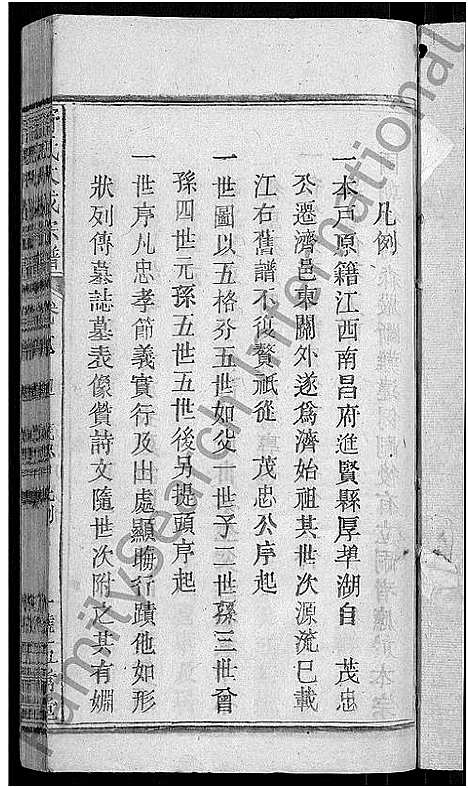 凡例
一本戸原籍江西南昌府進賢縣厚㙷湖自 茂忠
公遷濟邑東關外遂爲濟始祖其世次源流已載
江右舊譜不復贅祇從 茂忠公序起
一世圖以五格分五世如父一世子二世孫三世曾
孫四世元孫五世五世後另提頭序起
一世序凡忠孝節義實行及出處顯晦行蹟他如形
狀列傳墓誌墓表像贊詩文隨世次附之其有嫺
氏大成宗譜
FamilySearch International